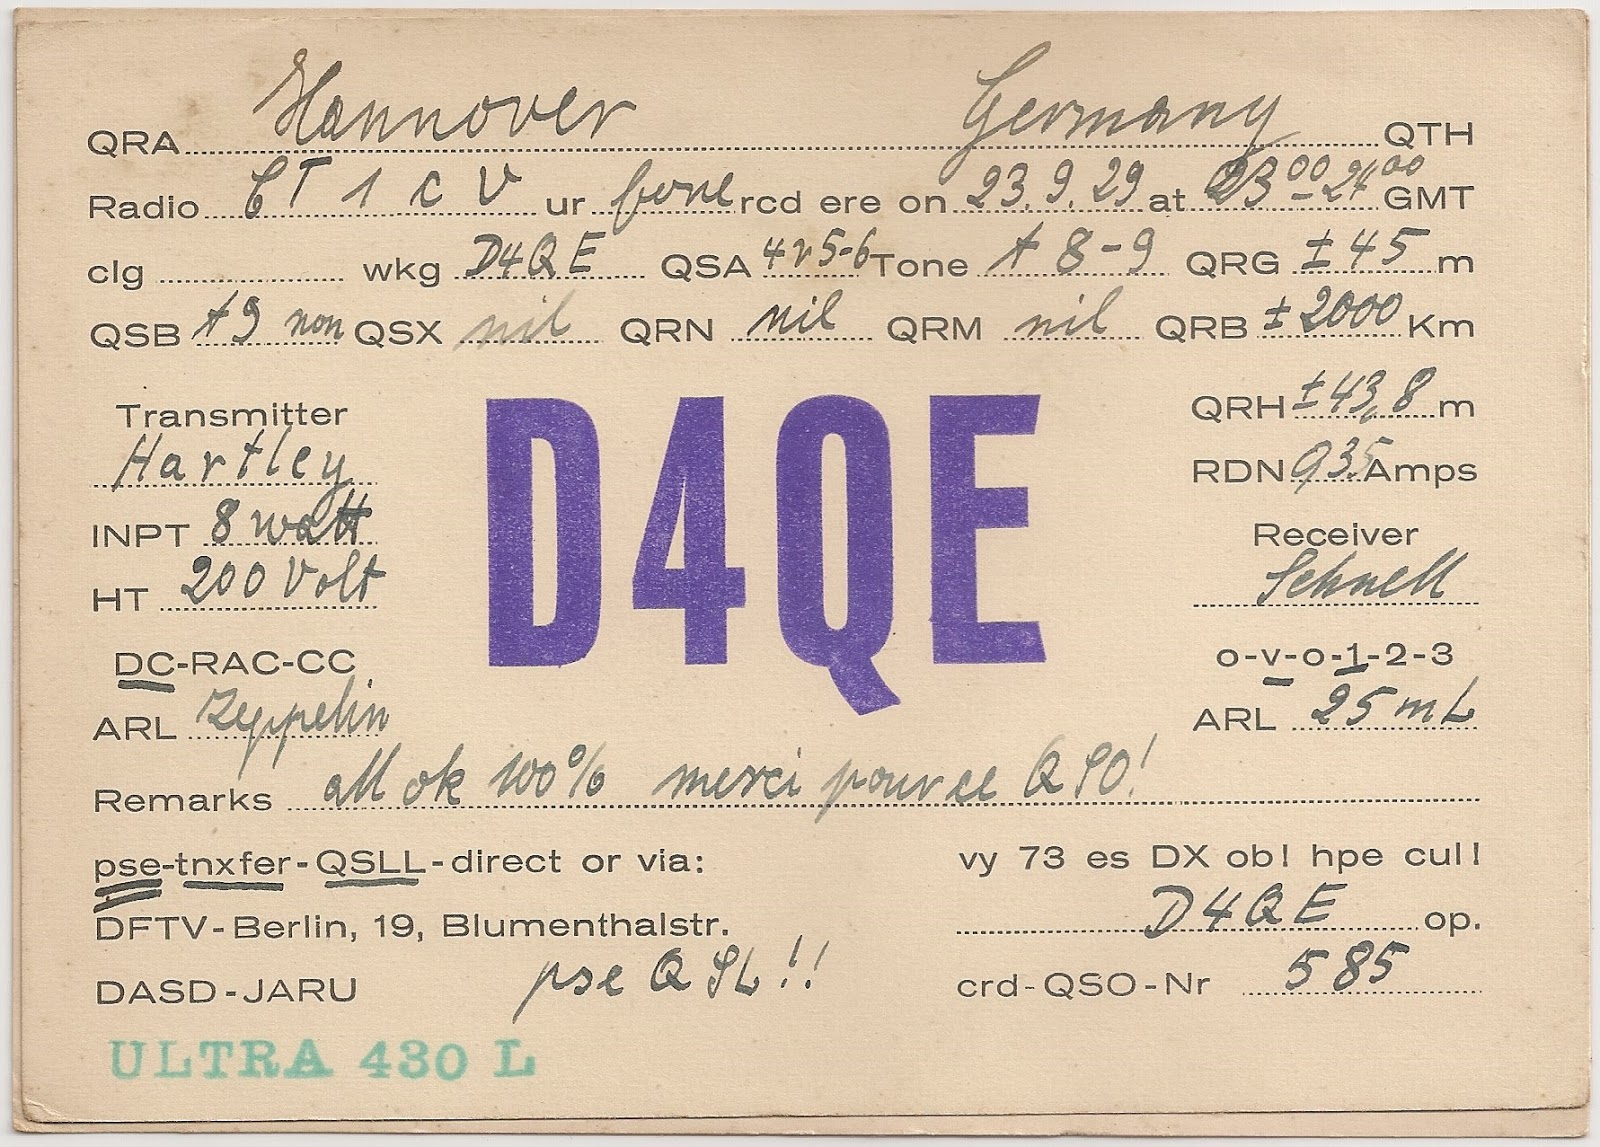 QRA Hannover Germany QTH
Radio CT 1 c V ur fone rcd ere on 23.9.29 at 23⁰⁰-24⁰⁰ GMT
clg wkg D4QE QSA 4 r5-6 Tone t 8-9 QRG ±45 m
QSB t9 non QSX nil QRN nil QRM nil QRB ±2000 Km
Transmitter
Hartley
INPT 8 watt
HT 200 Volt
DC-RAC-CC
ARL Zeppelin
D4QE
QRH ±43,8 m
RDN 0,35 Amps
Receiver
Schnell
o-v-o-1-2-3
ARL 25 m L
Remarks all ok 100% merci pour ce QSO!
pse-tnxfer-QSLL-direct or via:
DFTV-Berlin, 19, Blumenthalstr.
DASD-JARU pse QSL!!
vy 73 es DX ob! hpe cul!
D4QE op.
crd-QSO-Nr 585
ULTRA 430 L